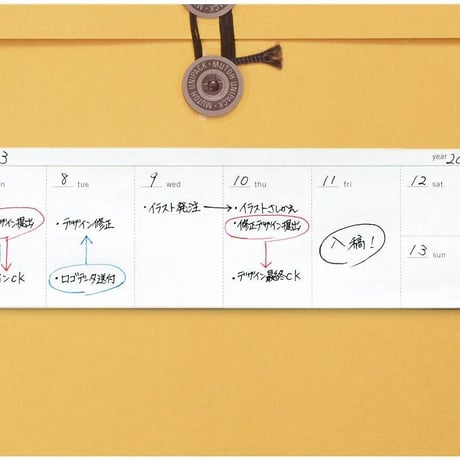 MUTOH UNIPACK • MUTOH UNIPACK •
3
year 20
n
8 tue
9 wed
10 thu
11 fri
12 sat
13 sun
ザイン提出
インCK
・デザイン修正
・ロゴデータ送付
・イラスト発注
・イラストさしかえ
・修正デザイン提出
・デザイン最終CK
入稿!